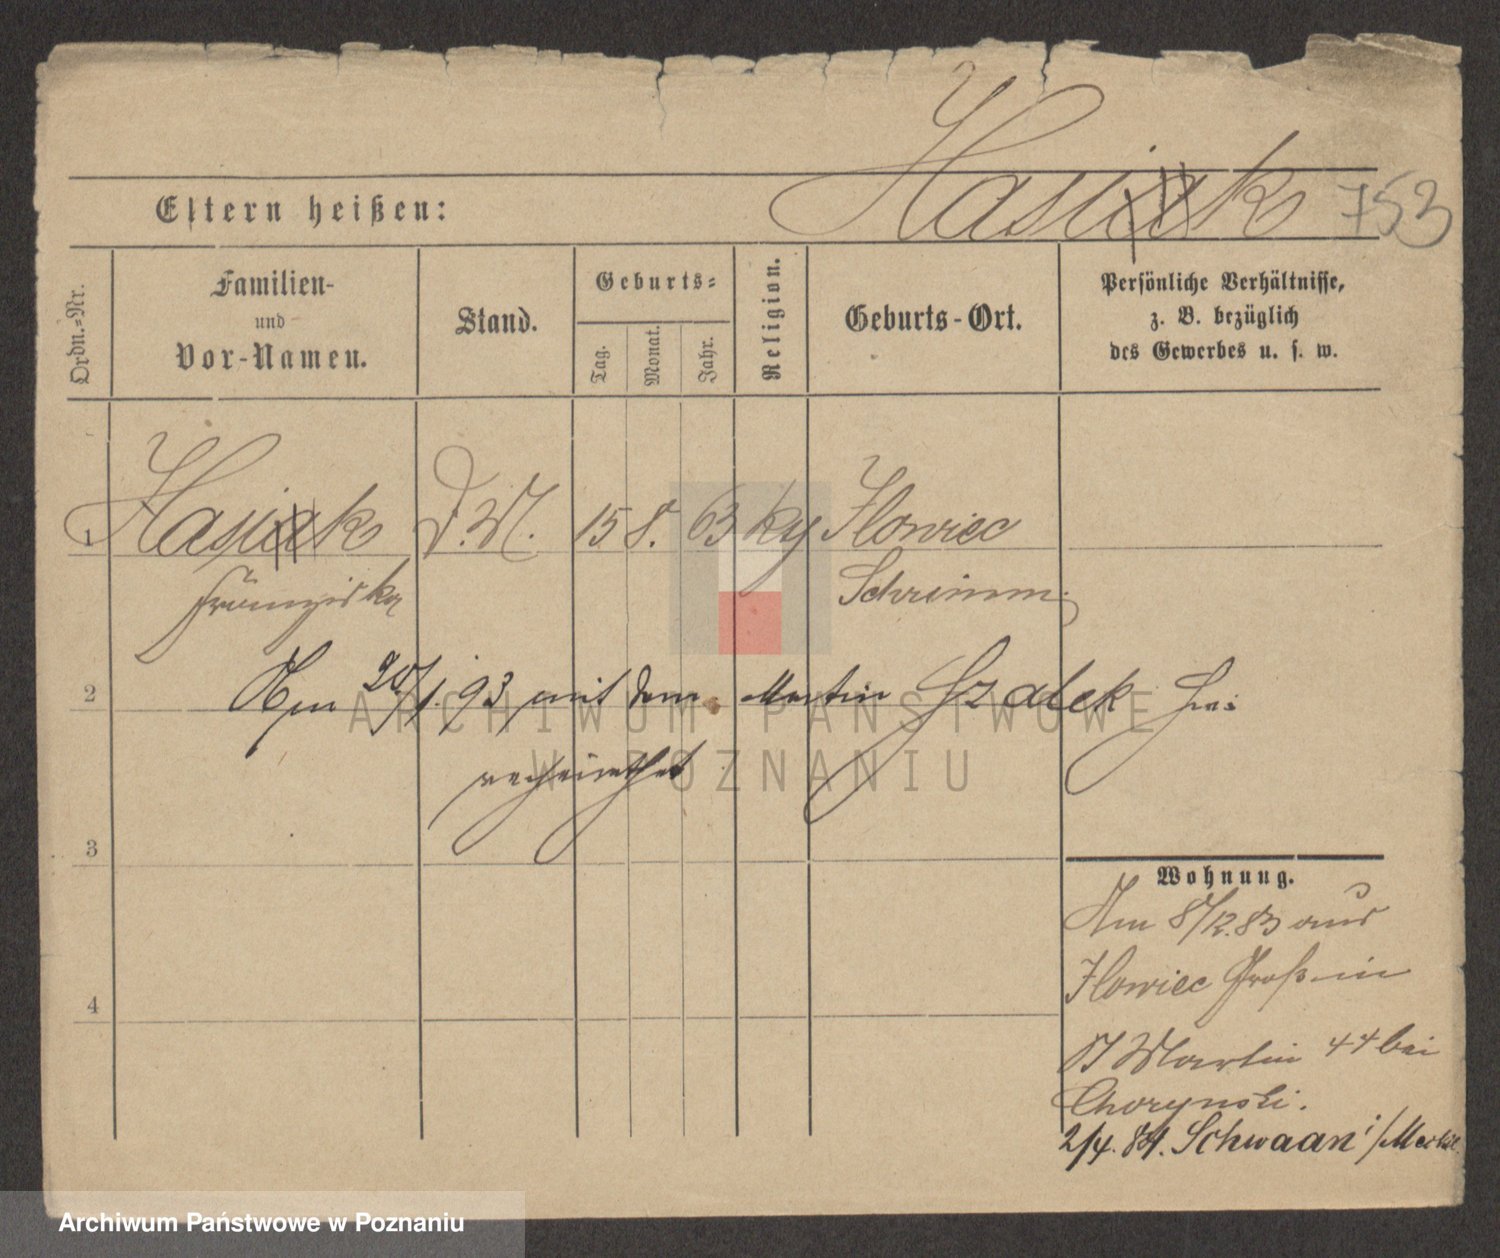 Hasiak 753
Eltern heißen:
Ordn.=Nr.
Familien-
und
Vor-Namen.
Stand.
Geburts=
Tag.
Monat.
Jahr.
Religion.
Geburts-Ort.
Persönliche Verhältnisse,
z. B. bezüglich
des Gewerbes u. s. w.
1 Hasiak D.M. 15 8. 63 ky Ilowiec
Franziska Schrimm
2 Am 20/1.93 mit dem Martin Szalek hei
verheirathet
3
Wohnung.
Am 8/12.83 aus
Ilowiec Groß in
4
St Martin 44 bei
Chorynski.
2/4.84. Schwaan i/Meckl.
ARCHIWUM PAŃSTWOWE
W POZNANIU
Archiwum Państwowe w Poznaniu